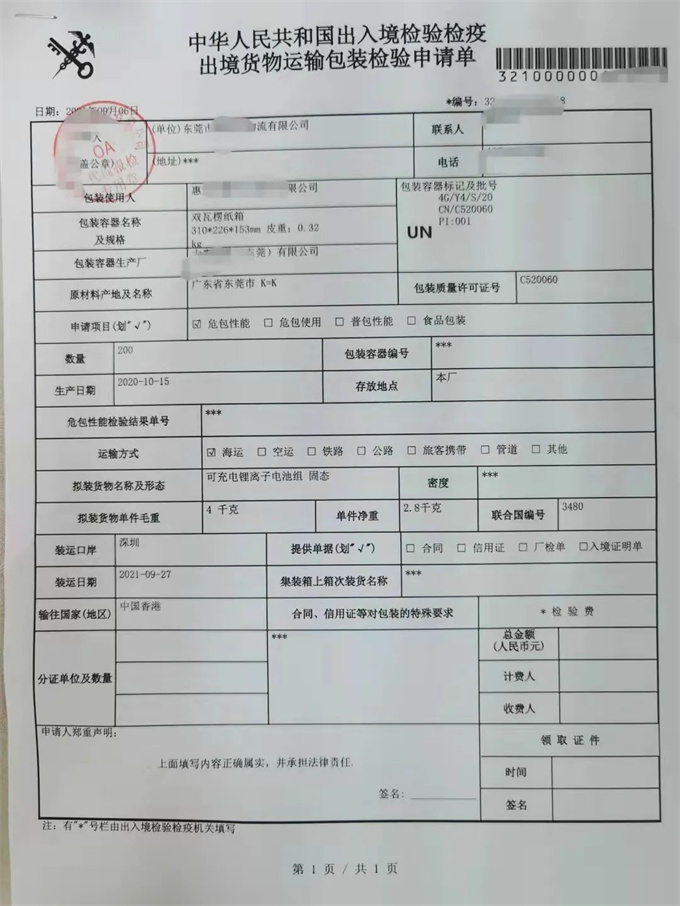 中华人民共和国出入境检验检疫
出境货物运输包装检验申请单
321000000
日期: 09月06日
*编号: 32 8
(单位) 东莞 物流有限公司
联系人
OA
代理报检
专用章
盖公章)
(地址) ***
电话
包装使用人
惠 有限公司
包装容器标记及批号
4G/Y4/S/20
CN/C520060
PI:001
UN
包装容器名称
及规格
双瓦楞纸箱
310*226*153mm 皮重: 0.32
kg
包装容器生产厂
东莞) 有限公司
原材料产地及名称
广东省东莞市 K=K
包装质量许可证号
C520060
申请项目(划"√")
☑ 危包性能 ☐ 危包使用 ☐ 普包性能 ☐ 食品包装
数量
200
包装容器编号
***
生产日期
2020-10-15
存放地点
本厂
危包性能检验结果单号
***
运输方式
☑ 海运 ☐ 空运 ☐ 铁路 ☐ 公路 ☐ 旅客携带 ☐ 管道 ☐ 其他
拟装货物名称及形态
可充电锂离子电池组 固态
密度
***
拟装货物单件毛重
4 千克
单件净重
2.8千克
联合国编号
3480
装运口岸
深圳
提供单据(划"√")
☐ 合同 ☐ 信用证 ☐ 厂检单 ☐入境证明单
装运日期
2021-09-27
集装箱上箱次装货名称
***
输往国家(地区)
中国香港
合同、信用证等对包装的特殊要求
* 检 验 费
分证单位及数量
***
总金额
(人民币元)
计费人
收费人
申请人郑重声明:
上面填写内容正确属实, 并承担法律责任.
签名:
领 取 证 件
时间
签名
注: 有"*"号栏由出入境检验检疫机关填写
第 1 页 / 共 1 页